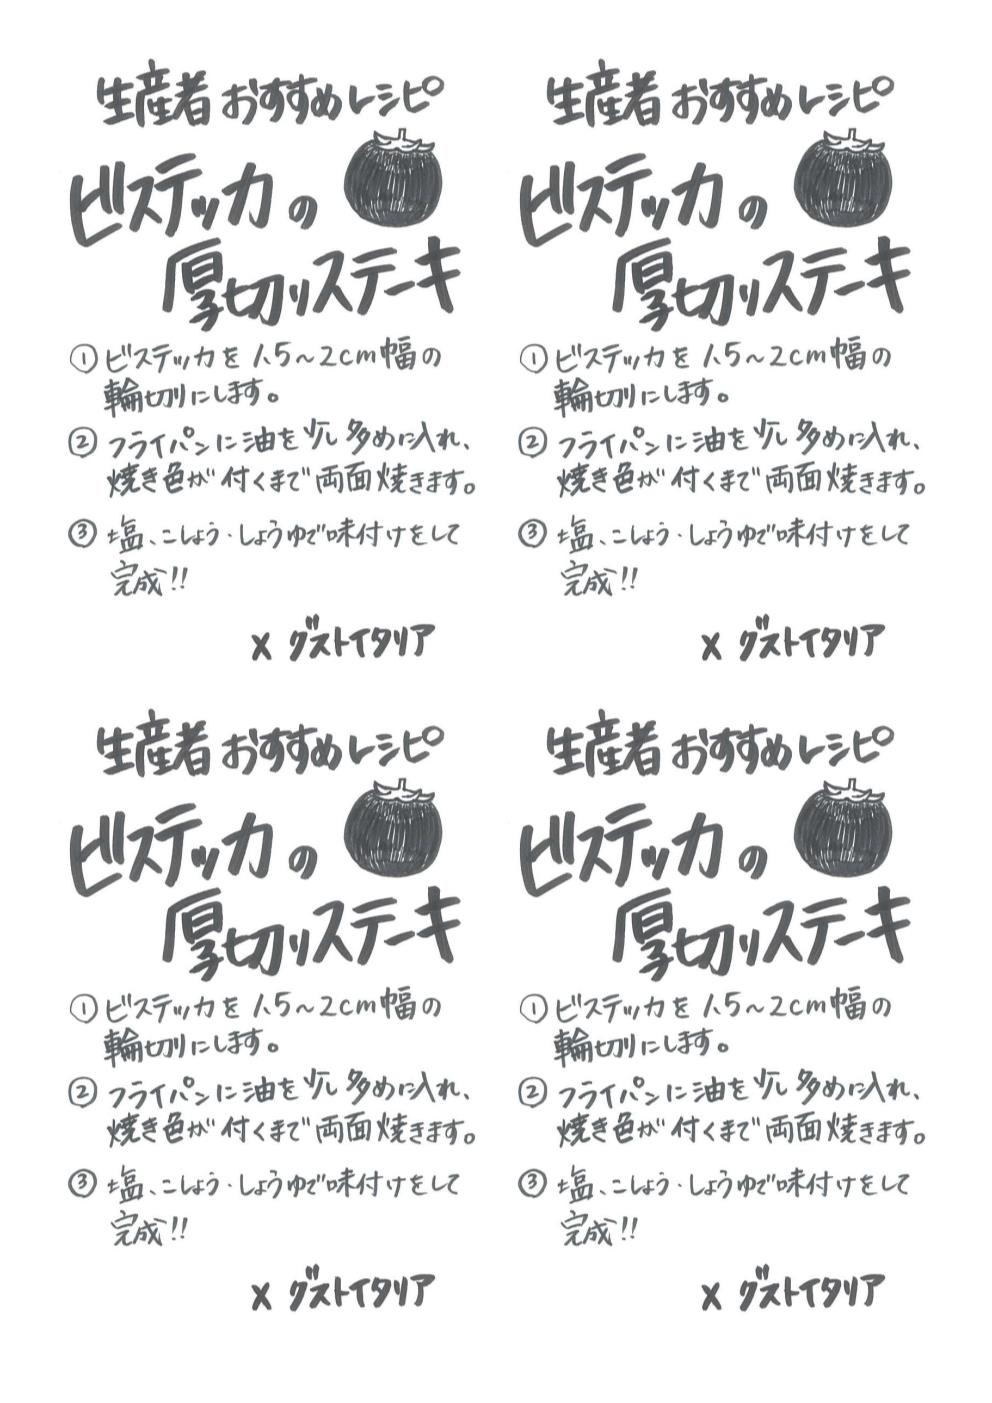 生産者おすすめレシピ
ビステッカの
厚切りステーキ
①ビステッカを1.5〜2cm幅の
輪切りにします。
②フライパンに油を少し多めに入れ、
焼き色が付くまで両面焼きます。
③塩、こしょう・しょうゆで味付けをして
完成!!
× グストイタリア
生産者おすすめレシピ
ビステッカの
厚切りステーキ
①ビステッカを1.5〜2cm幅の
輪切りにします。
②フライパンに油を少し多めに入れ、
焼き色が付くまで両面焼きます。
③塩、こしょう・しょうゆで味付けをして
完成!!
× グストイタリア
生産者おすすめレシピ
ビステッカの
厚切りステーキ
①ビステッカを1.5〜2cm幅の
輪切りにします。
②フライパンに油を少し多めに入れ、
焼き色が付くまで両面焼きます。
③塩、こしょう・しょうゆで味付けをして
完成!!
× グストイタリア
生産者おすすめレシピ
ビステッカの
厚切りステーキ
①ビステッカを1.5〜2cm幅の
輪切りにします。
②フライパンに油を少し多めに入れ、
焼き色が付くまで両面焼きます。
③塩、こしょう・しょうゆで味付けをして
完成!!
× グストイタリア